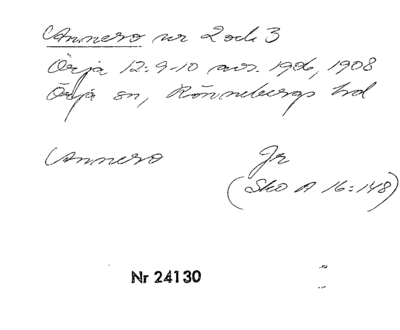 Annero nr 2 och 3
Örja 12:9-10 avs. 1906, 1908
Örja sn, Rönnebergs hd
Annero Jr
(Sko A 16:148)
Nr 24130